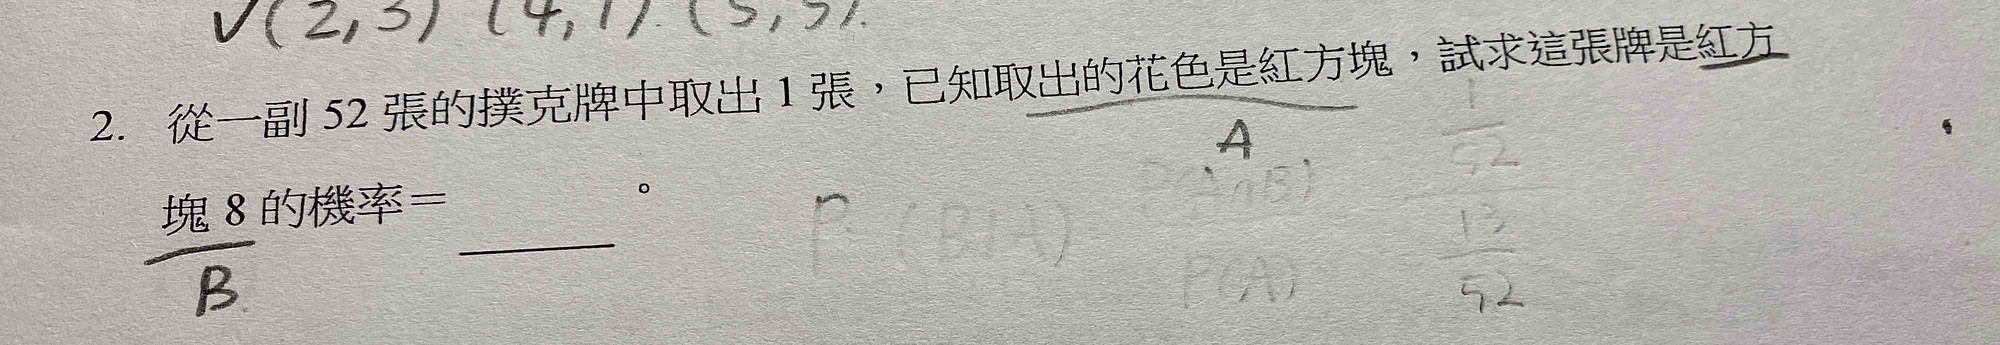 √(2,3) (4,1). (5,5).
2. 從一副 52 張的撲克牌中取出 1 張，已知取出的花色是紅方塊，試求這張牌是紅方
A
塊 8 的機率＝ 。
B
P(B|A) P(A∩B)
P(A)
1
52
13
52